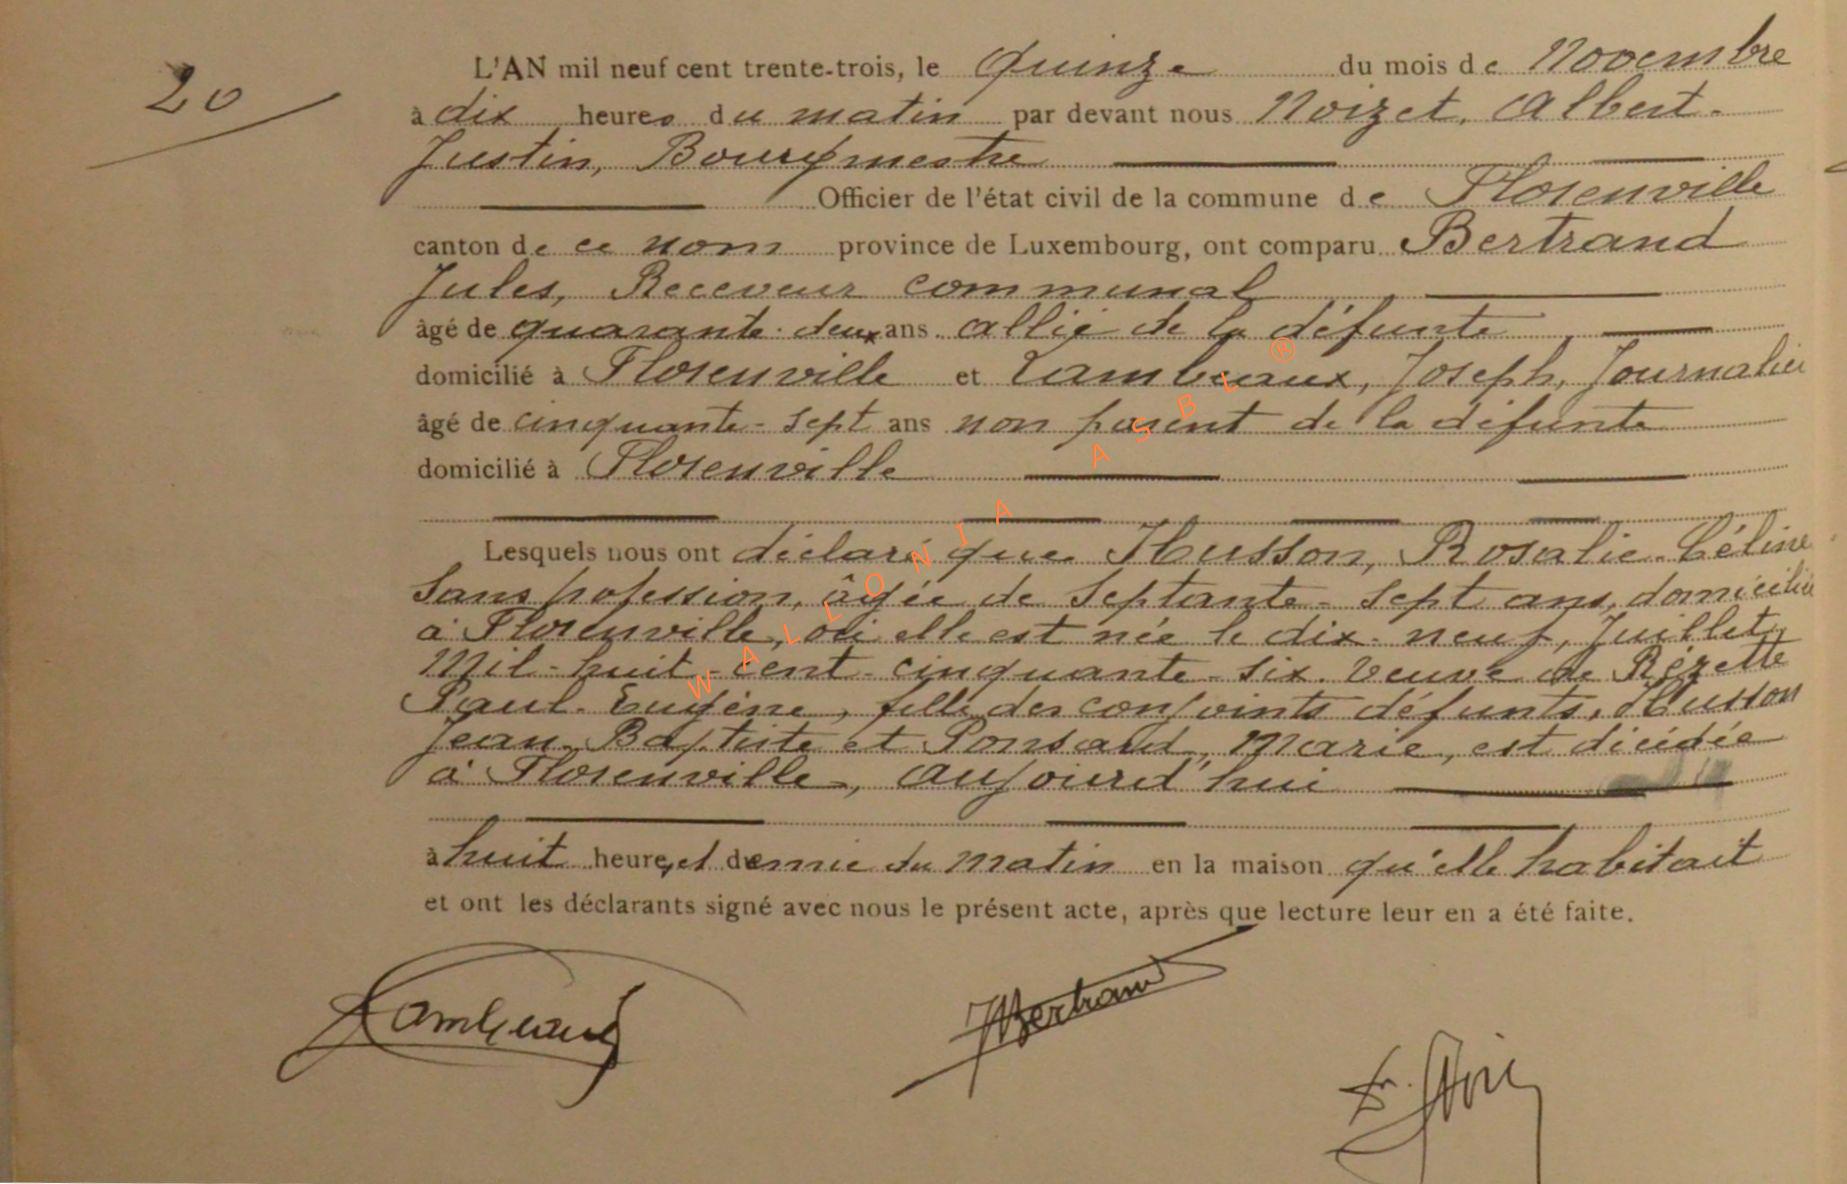 20
L'AN mil neuf cent trente-trois, le quinze du mois de Novembre
à dix heures du matin par devant nous Noizet, Albert-
Justin, Bourgmestre
Officier de l'état civil de la commune de Florenville
canton de ce nom province de Luxembourg, ont comparu Bertrand
Jules, Receveur communal
âgé de quarante-deux ans allié de la défunte
domicilié à Florenville et Lambeaux, Joseph, Journalier
âgé de cinquante-sept ans non parent de la défunte
domicilié à Florenville
Lesquels nous ont déclaré que Husson, Rosalie-Céline
Sans profession, âgée de Septante-Sept ans, domiciliée
à Florenville, où elle est née le dix-neuf, Juillet
Mil-huit-cent-cinquante-six. Veuve de Rézette
Paul-Eugène, fille des conjoints défunts, Husson
Jean-Baptiste et Ponsard, Marie, est décédée
à Florenville, aujourd'hui
à huit heures et demie du matin en la maison qu'elle habitait
et ont les déclarants signé avec nous le présent acte, après que lecture leur en a été faite.
Lambeaux
JBertrand
WALLONIA ASBL ®